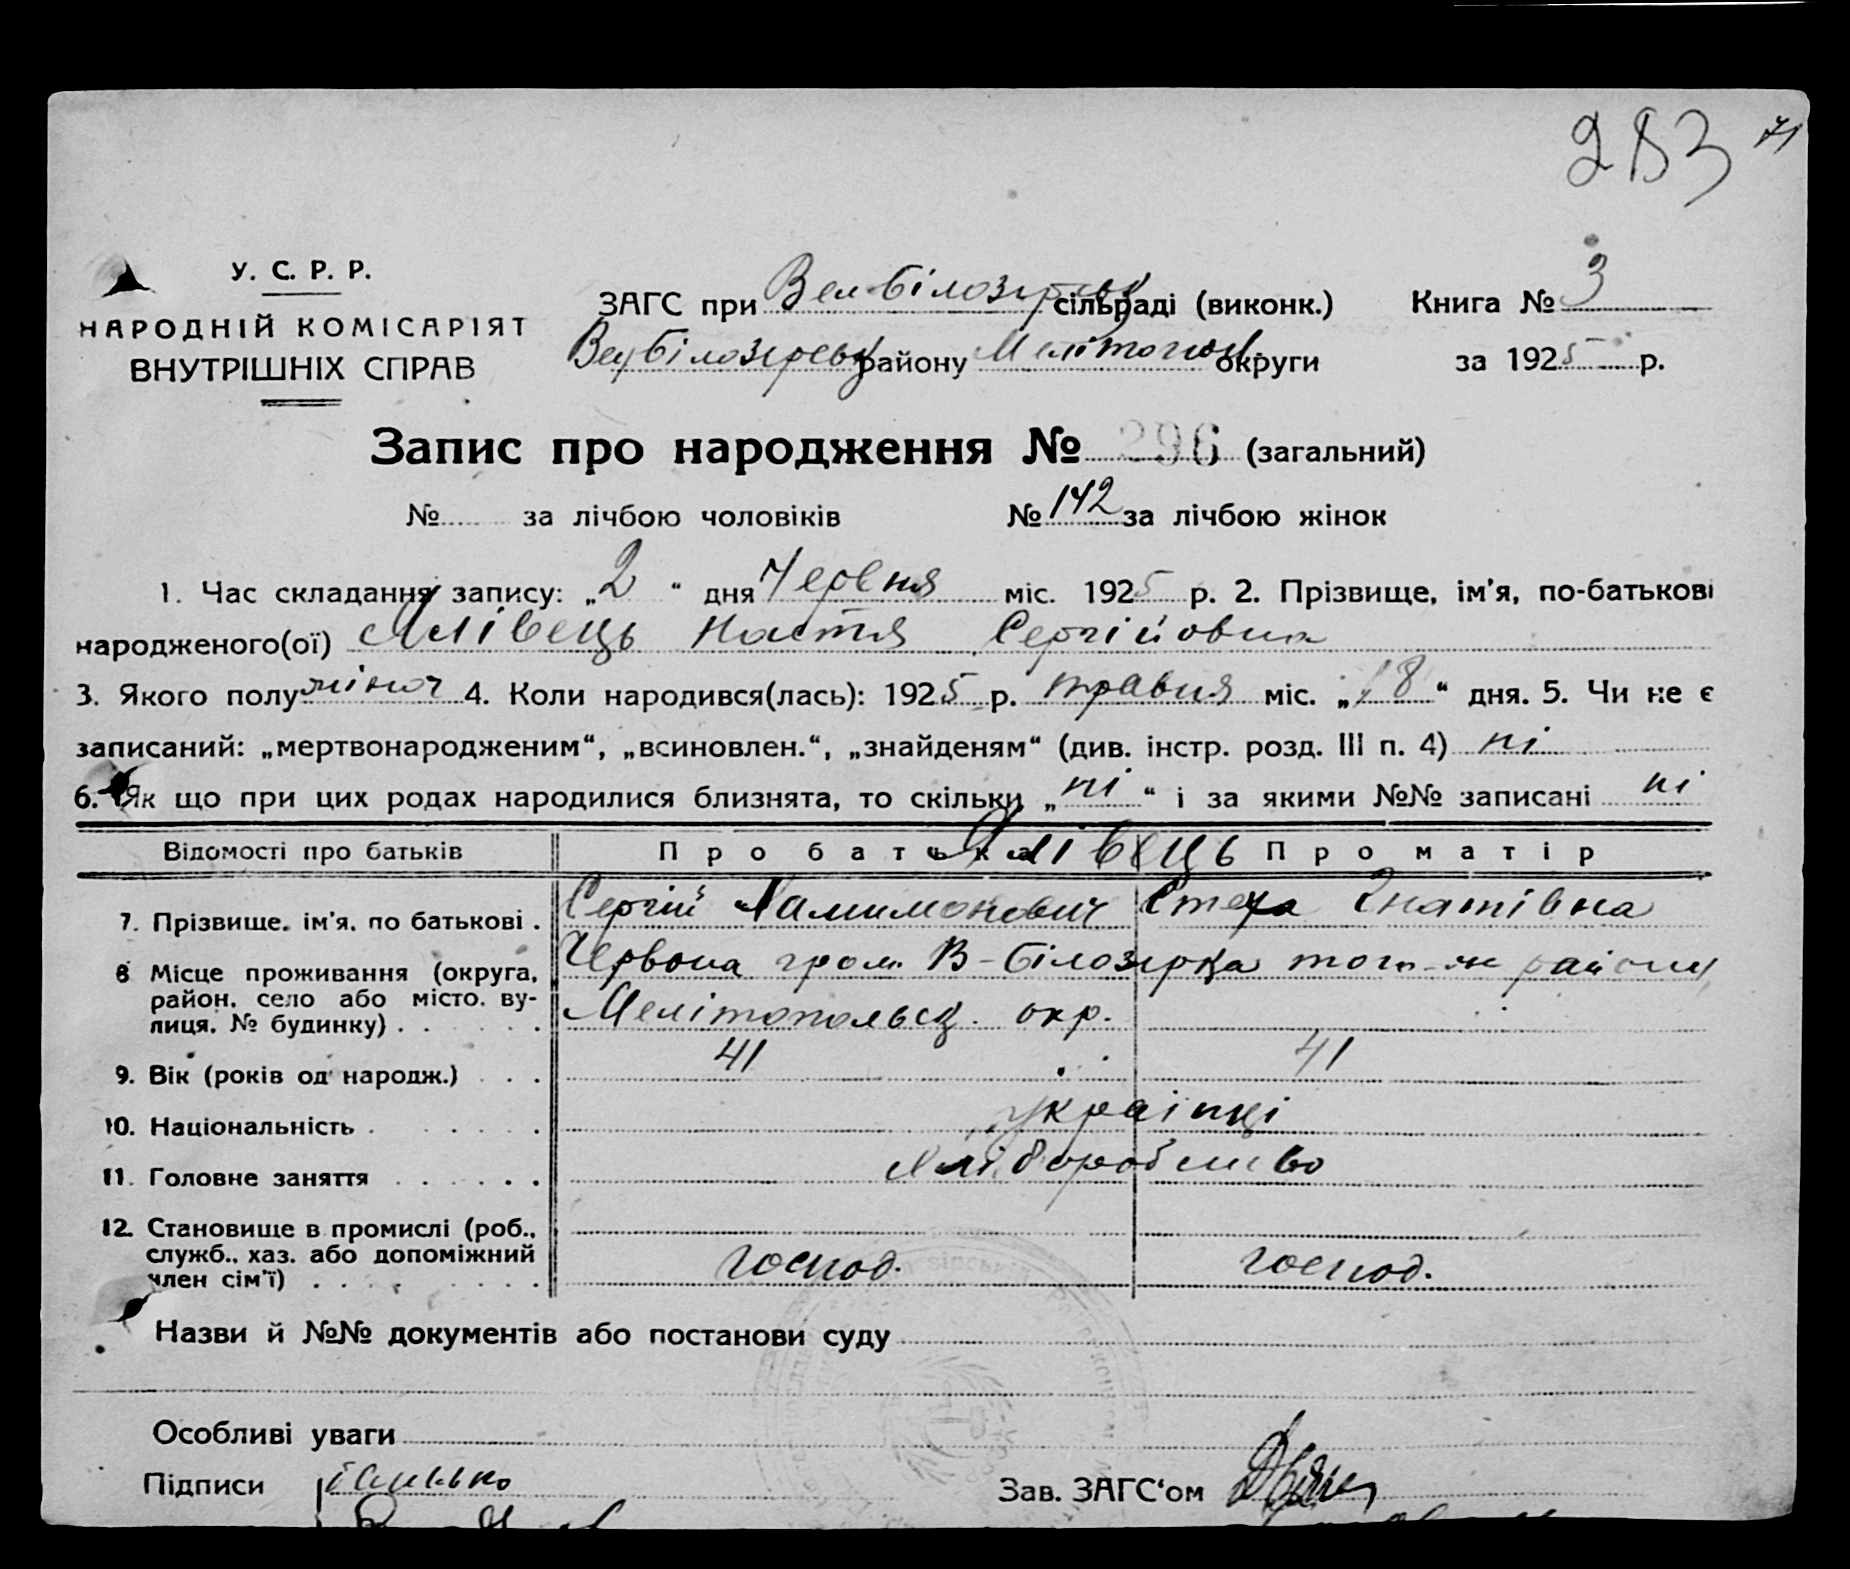 283 71
У. С. Р. Р.
НАРОДНІЙ КОМІСАРІЯТ
ВНУТРІШНІХ СПРАВ
ЗАГС при Вел-Білозірськ сільраді (виконк.) Книга № 3
Вел Білозірськ району Мелітопол. округи за 1925 р.
Запис про народження № 296 (загальний)
№ за лічбою чоловіків № 142 за лічбою жінок
1. Час складання запису: „2“ дня Червня міс. 1925 р. 2. Прізвище, ім'я, по-батькові
народженого(ої) Хлівець Настя Сергійовна
3. Якого полу жіноч 4. Коли народився(лась): 1925 р. травня міс. „18“ дня. 5. Чи не є
записаний: „мертвонародженим“, „всиновлен.“, „знайденям“ (див. інстр. розд. III п. 4) ні
6. Як що при цих родах народилися близнята, то скільки „ні“ і за якими №№ записані ні
Відомості про батьків Про батька Хлівець Про матір
7. Прізвище, ім'я, по батькові . Сергій Стеха Гнатівна
8 Місце проживання (округа, Червона гром. В-Білозірка того-ж району
район, село або місто, ву-
лиця, № будинку) . Мелітопольськ. окр.
9. Вік (років од народж.) 41 41
10. Національність українці
11. Головне заняття Хліборобство
12. Становище в промислі (роб.,
служб., хаз. або допоміжний
член сім'ї) господ. господ.
Назви й №№ документів або постанови суду
Особливі уваги
Підписи Батько Зав. ЗАГС'ом